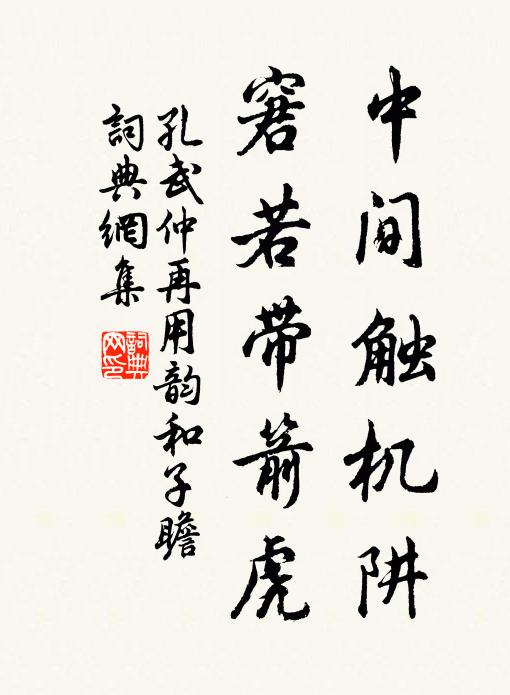 中间触机阱
窘若带箭虎
孔武仲再用韵和子瞻
詞典網集
詞典網印